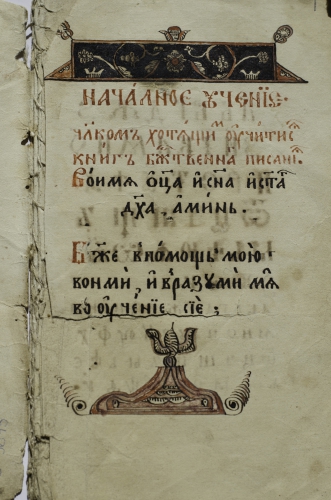 НАЧА́ЛНОЕ ᲂУ҆ЧЕ́НЇЕ
чл҃комъ хотѧ́щимъ ᲂу҆чи́тисѧ
книгъ бж҃е́ственнаго писа́нїѧ
Во и҆мѧ ѻ҆ц҃а̀ и҆ сн҃а и҆ ст҃а́гѡ
дх҃а, а҆ми́нь.
Бж҃е в по́мощь мою̀
во́нми, и҆ вразꙋми́ мѧ
во ᲂу҆че́нїе сїѐ;